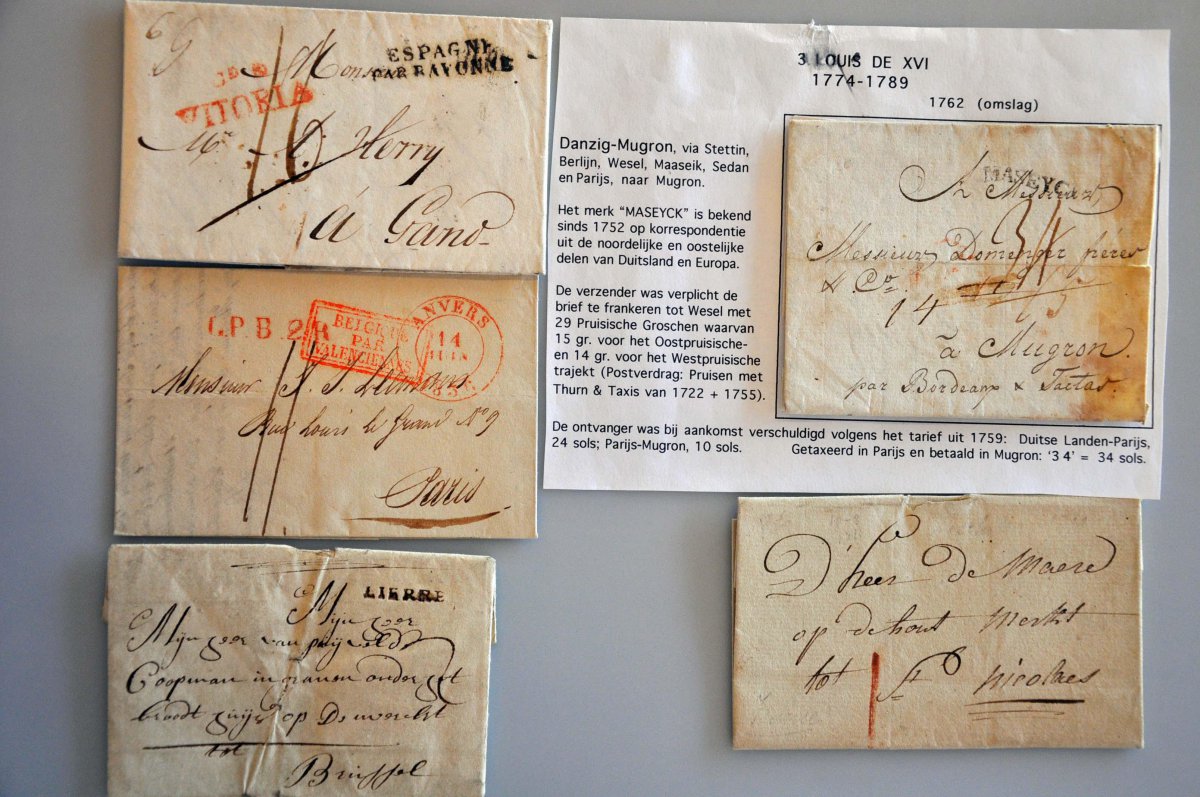 ESPAGNE
PAR BAYONNE
VITORIA
Mr. D. Herry
à Gand
L.P.B.2.R
BELGIQUE
PAR
VALENCIENNES
ANVERS
14
JUIN
Monsieur
Rue Louis le Grand No 9
Paris
LIERRE
Mijn heer
Mijn heer van
Coopman in
op De
tot
Brussel
3 LOUIS DE XVI
1774-1789
1762 (omslag)
Danzig-Mugron, via Stettin,
Berlijn, Wesel, Maaseik, Sedan
en Parijs, naar Mugron.
Het merk “MASEYCK” is bekend
sinds 1752 op korrespondentie
uit de noordelijke en oostelijke
delen van Duitsland en Europa.
De verzender was verplicht de
brief te frankeren tot Wesel met
29 Pruisische Groschen waarvan
15 gr. voor het Oostpruisische-
en 14 gr. voor het Westpruisische
trajekt (Postverdrag: Pruisen met
Thurn & Taxis van 1722 + 1755).
De ontvanger was bij aankomst verschuldigd volgens het tarief uit 1759: Duitse Landen-Parijs,
24 sols; Parijs-Mugron, 10 sols. Getaxeerd in Parijs en betaald in Mugron: ‘3 4’ = 34 sols.
MASEYCK
A Messieurs
Messieurs Domenger frères
& Co.
34
14
à Mugron.
par Bordeaux & Tartas.
D'heer De Maere
op de hout Merkt
tot St nicolaes